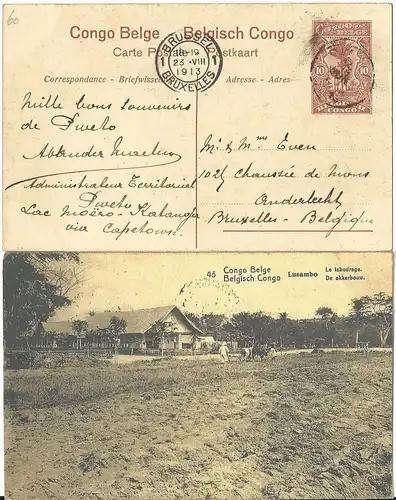 60
Congo Belge - Belgisch Congo
Carte Postale - Postkaart
Correspondance - Briefwissel
Adresse - Adres
BRUSSEL
18-19
23 -VIII
1913
1 1
BRUXELLES
CONGO
BELGE
10 10
CONGO
Mille bons souvenirs
de Pweto
Administrateur Territorial
Pweto
Lac Moëro - Katanga
via Capetown.
Mr & Mme Even
102 Chaussée de Mons
Anderlecht
Bruxelles - Belgique
45 Congo Belge
Belgisch Congo
Lusambo
Le labourage.
De akkerbouw.